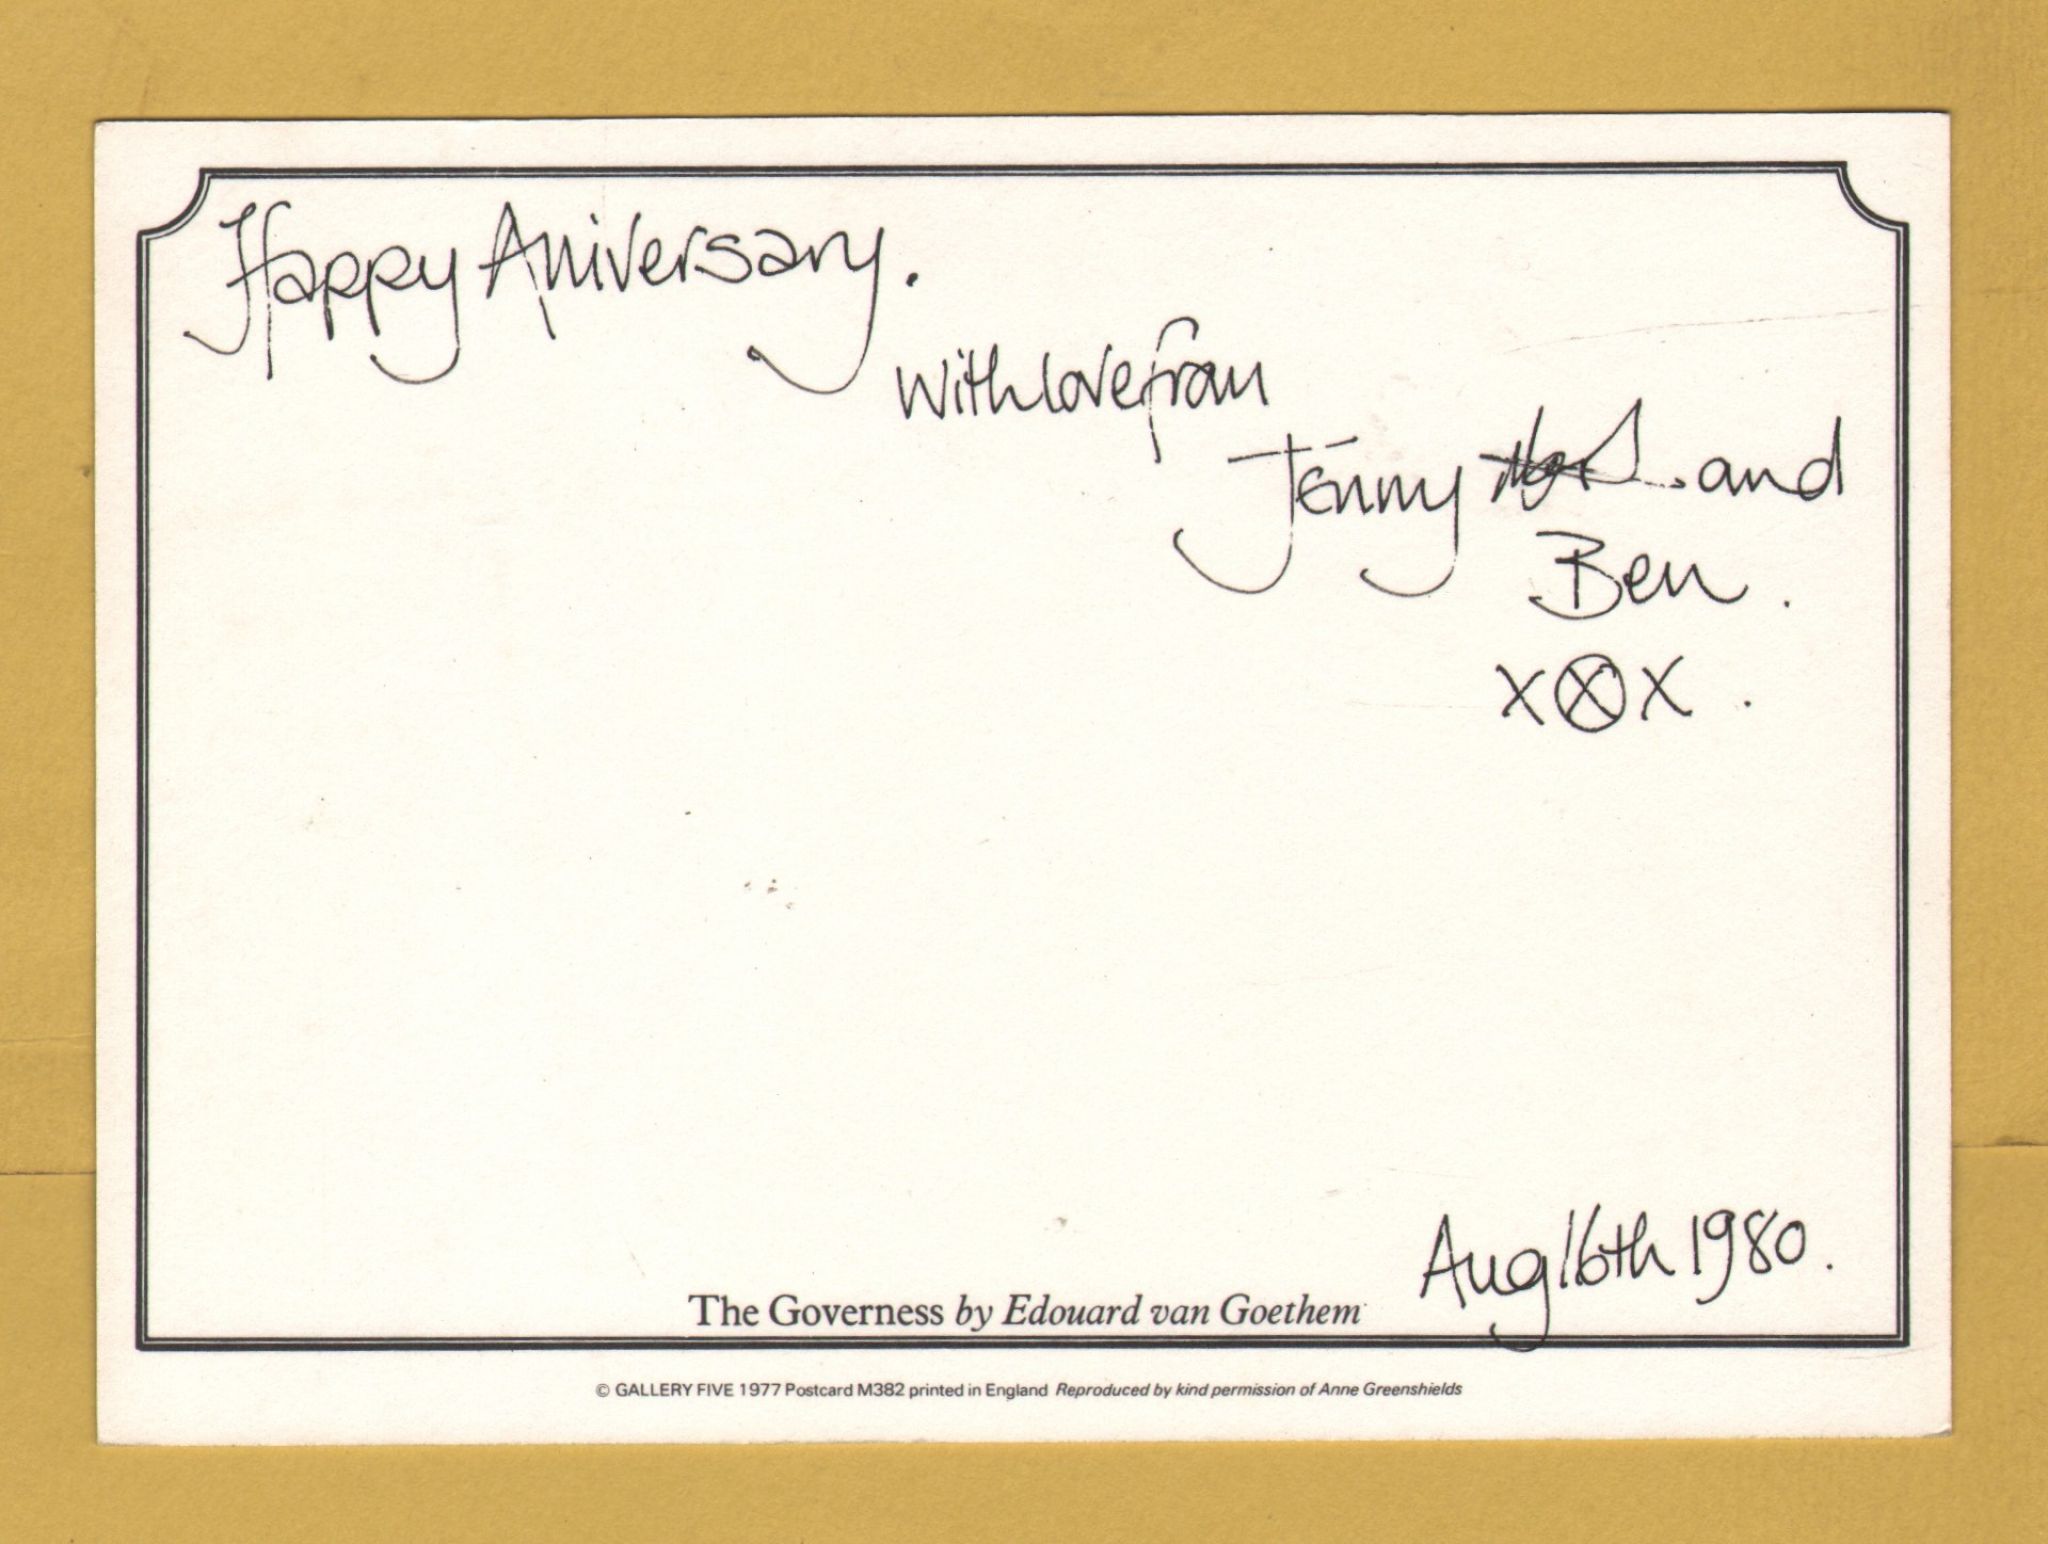 Happy Aniversary.
with love from
Jenny and
Ben.
X X X.
Aug 16th 1980.
The Governess by Edouard van Goethem
© GALLERY FIVE 1977 Postcard M382 printed in England Reproduced by kind permission of Anne Greenshields